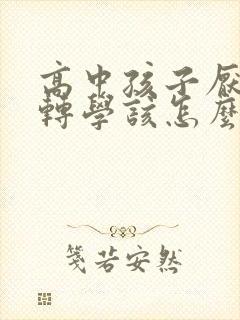 高中孩子厭
轉學該怎麼
箋若安然